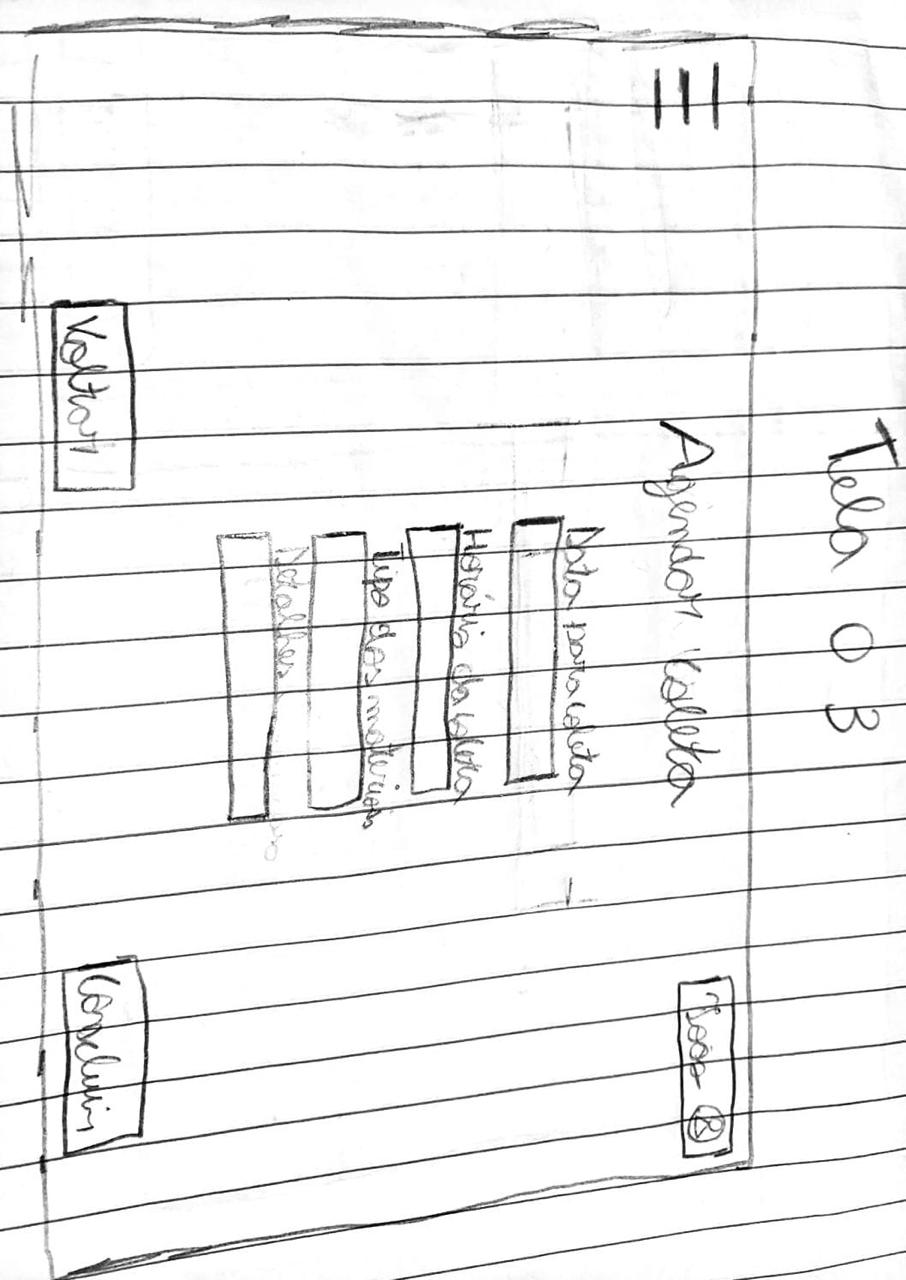 Tela 03
João
Agendar coleta
Data para coleta
Horário da coleta
Tipo dos materiais
Detalhes
Voltar
Concluir